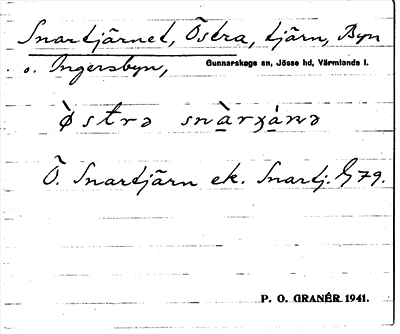 Snartjärnet, Östra, tjärn, Byn
o. Ingersbyn, Gunnarskogs sn, Jösse hd, Värmlands l.
Ö. Snartjärn ek. Snartj. G 79.
P. O. GRANÉR 1941.